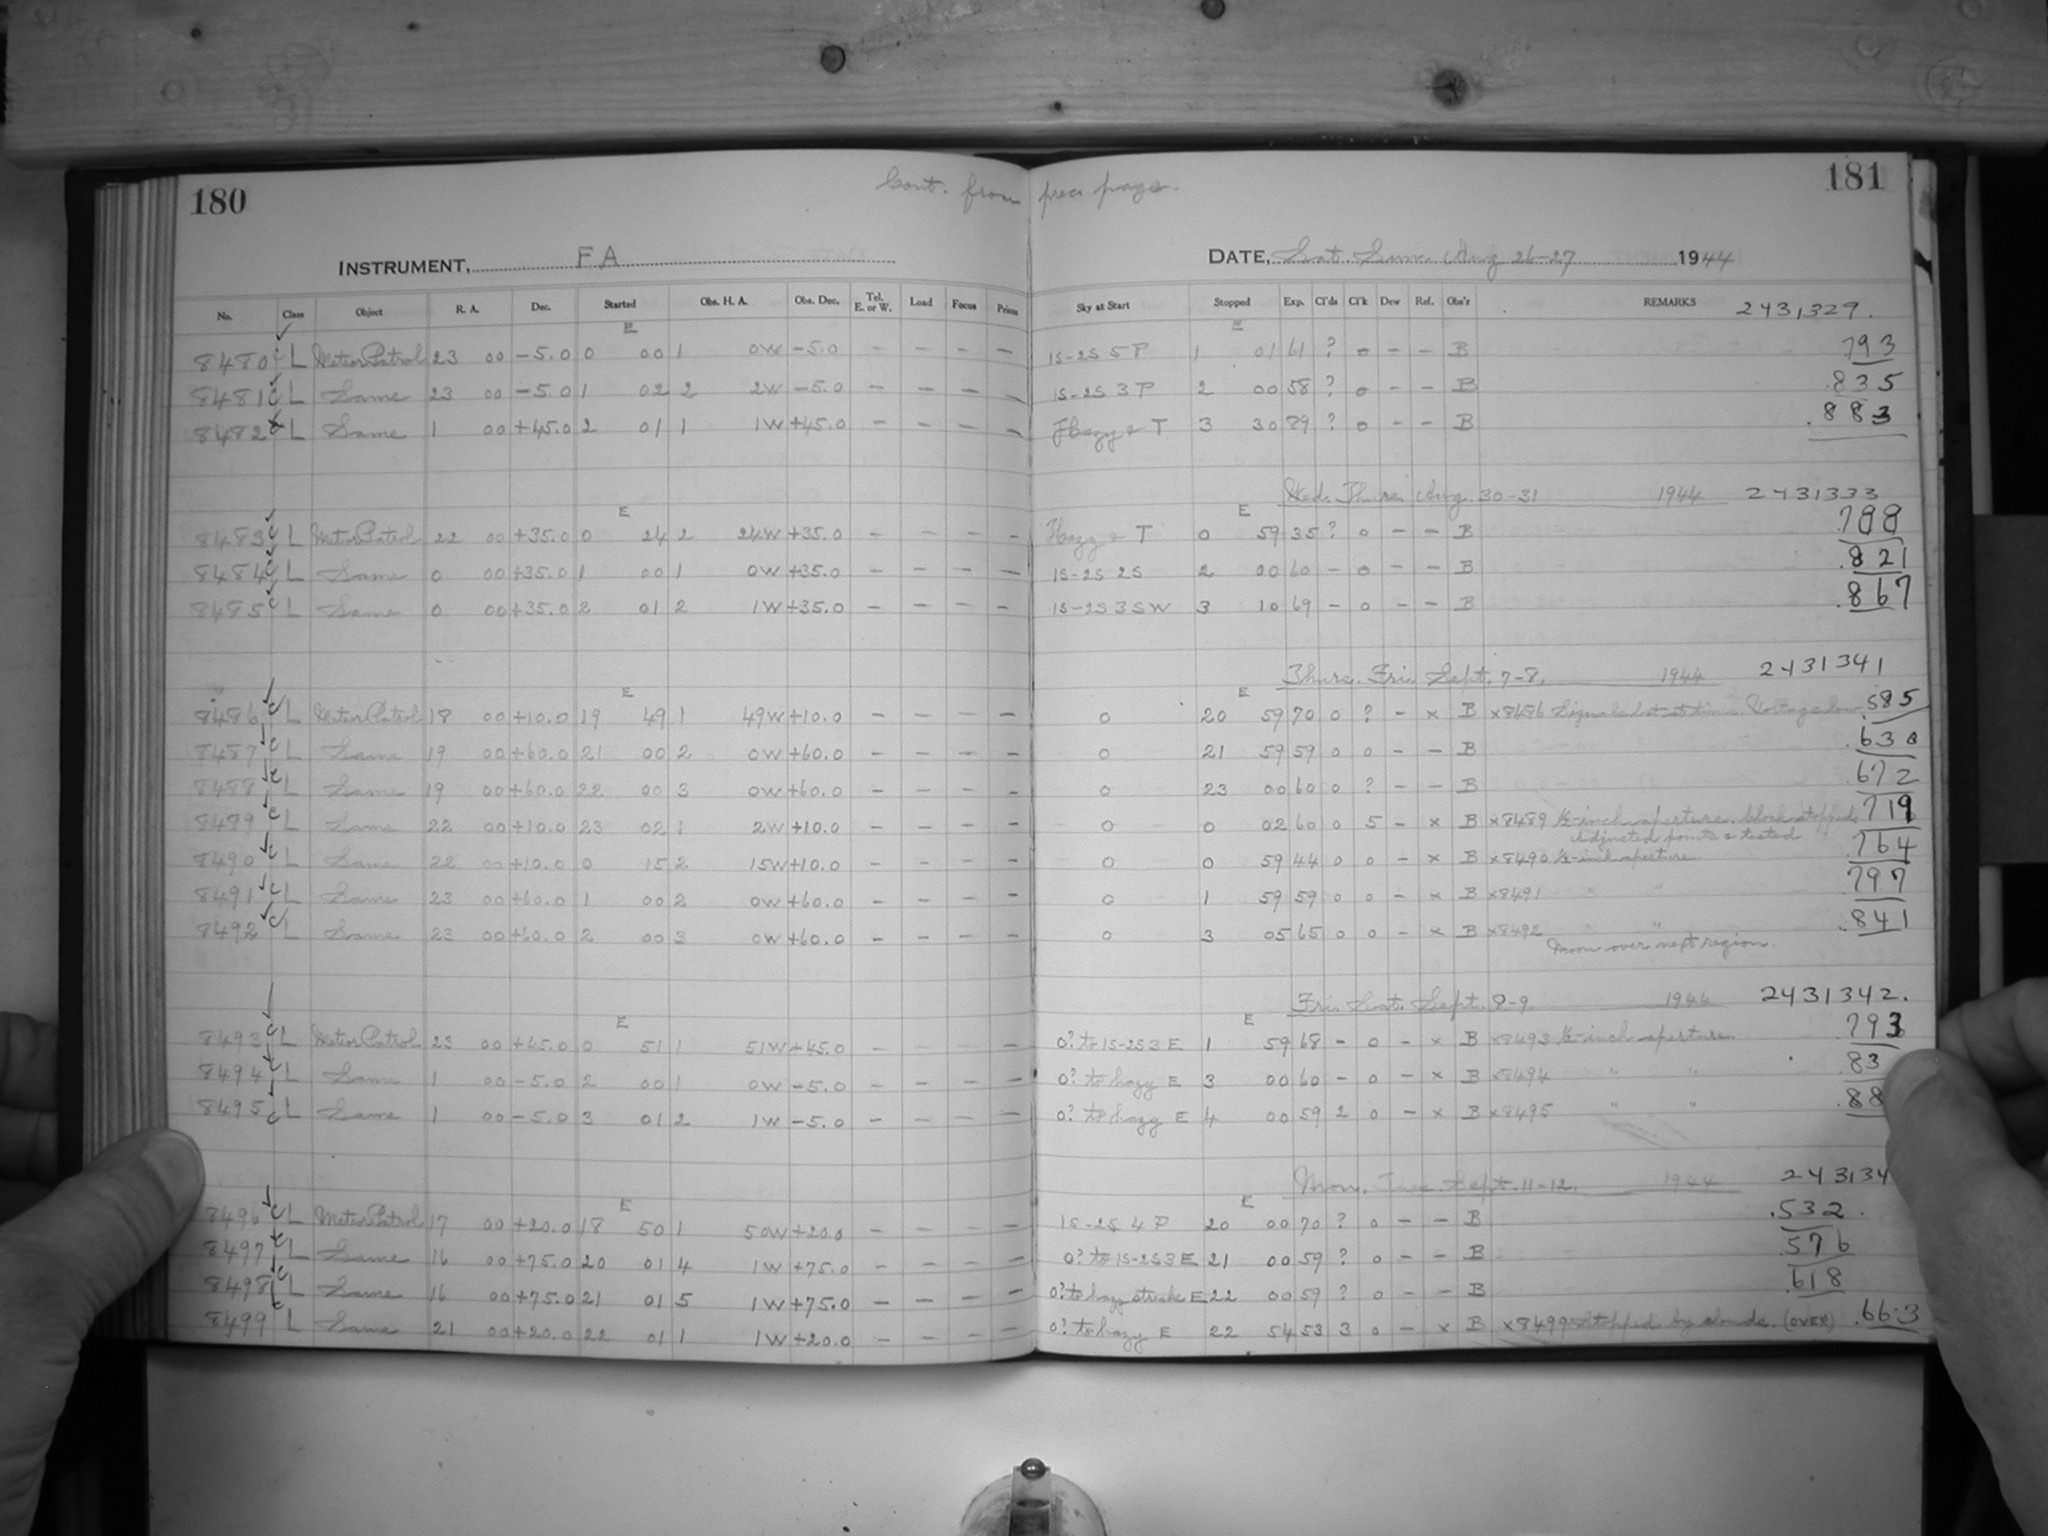 180
Cont. from prec page.
181
INSTRUMENT, FA
DATE, Sat. Sun. Aug 26-27 1944
No. Class Object R. A. Dec. Started Obs. H. A. Obs. Dec. Tel. E. or W. Load Focus Prisms Sky at Start Stopped Exp. Cl'ds Cl'k Dew Ref. Obs'r REMARKS 2431329.
E E
8480 c L Meteor Patrol 23 00 -5.0 0 00 1 0W -5.0 - - - - 1S-2S 5 P 1 01 61 ? 0 - - B .793
8481 c L Same 23 00 -5.0 1 02 2 2W -5.0 - - - - 1S-2S 3 P 2 00 58 ? 0 - - B .835
8482 L Same 1 00 +45.0 2 01 1 1W +45.0 - - - - Hazy & T 3 30 89 ? 0 - - B .883
Wed. Thurs. Aug. 30-31 1944 2431333
E E
8483 c L Meteor Patrol 22 00 +35.0 0 24 2 24W +35.0 - - - - Hazy & T 0 59 35 ? 0 - - B .788
8484 c L Same 0 00 +35.0 1 00 1 0W +35.0 - - - - 1S-2S 2S 2 00 60 - 0 - - B .821
8485 c L Same 0 00 +35.0 2 01 2 1W +35.0 - - - - 1S-2S 3 SW 3 10 69 - 0 - - B .867
Thurs. Fri. Sept. 7-8. 1944 2431341
E E
8486 c L Meteor Patrol 18 00 +10.0 19 49 1 49W +10.0 - - - - 0 20 59 70 0 ? - x B x8486 Signals lost at times. Voltage low .585
8487 c L Same 19 00 +60.0 21 00 2 0W +60.0 - - - - 0 21 59 59 0 0 - - B .630
8488 c L Same 19 00 +60.0 22 00 3 0W +60.0 - - - - 0 23 00 60 0 ? - - B .672
8489 c L Same 22 00 +10.0 23 02 1 2W +10.0 - - - - 0 0 02 60 0 5 - x B x8489 ½-inch aperture. Clock stopped. .719
Adjusted points & tested
8490 c L Same 22 00 +10.0 0 15 2 15W +10.0 - - - - 0 0 59 44 0 0 - x B x8490 ½-inch aperture .764
8491 c L Same 23 00 +60.0 1 00 2 0W +60.0 - - - - 0 1 59 59 0 0 - x B x8491 " " .797
8492 c L Same 23 00 +60.0 2 00 3 0W +60.0 - - - - 0 3 05 65 0 0 - x B x8492 " " .841
Moon over next region.
Fri. Sat. Sept. 8-9. 1944 2431342.
E E
8493 c L Meteor Patrol 23 00 +45.0 0 51 1 51W +45.0 - - - - 0? to 1S-2S 3 E 1 59 68 - 0 - x B x8493 ½-inch aperture. .793
8494 c L Same 1 00 -5.0 2 00 1 0W -5.0 - - - - 0? to hazy E 3 00 60 - 0 - x B x8494 " " .83
8495 c L Same 1 00 -5.0 3 01 2 1W -5.0 - - - - 0? to hazy E 4 00 59 2 0 - x B x8495 " " .88
Mon. Tues. Sept. 11-12. 1944 243134
E E
8496 c L Meteor Patrol 17 00 +20.0 18 50 1 50W +20.0 - - - - 1S-2S 4 P 20 00 70 ? 0 - - B .532
8497 c L Same 16 00 +75.0 20 01 4 1W +75.0 - - - - 0? to 1S-2S 3 E 21 00 59 ? 0 - - B .576
8498 c L Same 16 00 +75.0 21 01 5 1W +75.0 - - - - 0? to hazy streaks E 22 00 59 ? 0 - - B .618
8499 c L Same 21 00 +20.0 22 01 1 1W +20.0 - - - - 0? to hazy E 22 54 53 3 0 - x B x8499 Stopped by clouds. (OVER) .663